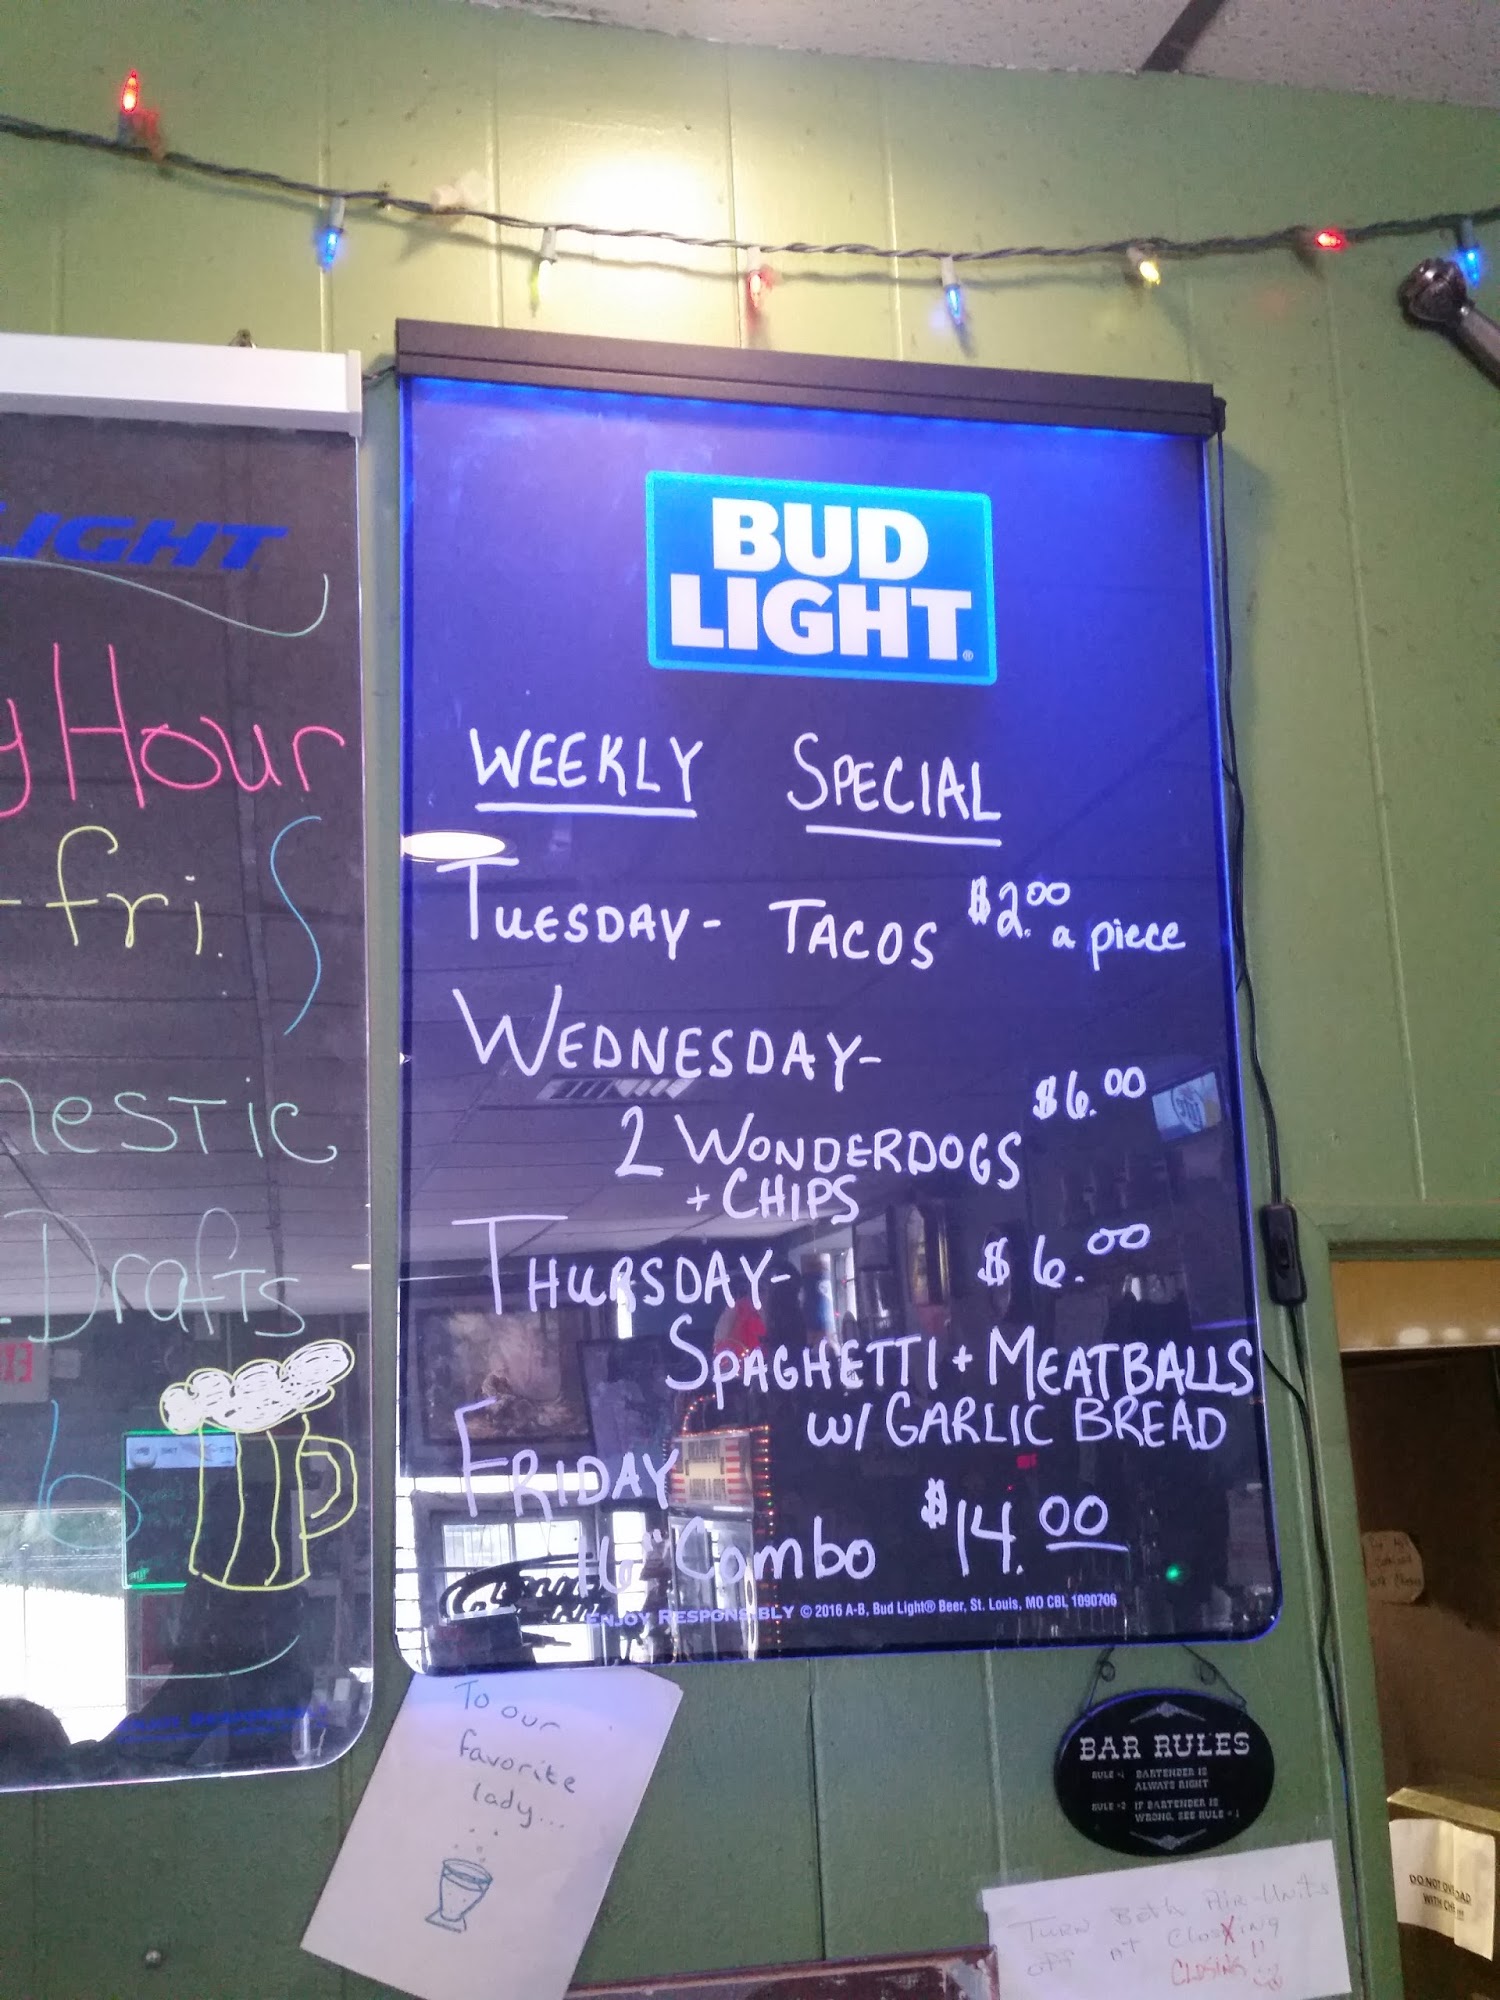 LIGHT
Hour
-fri.
Drafts
BUD
LIGHT®
WEEKLY SPECIAL
TUESDAY- TACOS $2.00 a piece
WEDNESDAY-
$6.00
2 WONDERDOGS
+ CHIPS
THURSDAY- $6.00
SPAGHETTI + MEATBALLS
W/ GARLIC BREAD
FRIDAY
16" Combo $14.00
ENJOY RESPONSIBLY © 2016 A-B, Bud Light® Beer, St. Louis, MO CBL 1090706
To our
favorite
lady...
BAR RULES
RULE #1 BARTENDER IS
ALWAYS RIGHT
RULE #2 IF BARTENDER IS
WRONG, SEE RULE #1
TURN Both Air-Units
OFF AT CloXing
CLOSING!!
DO NOT
WITH